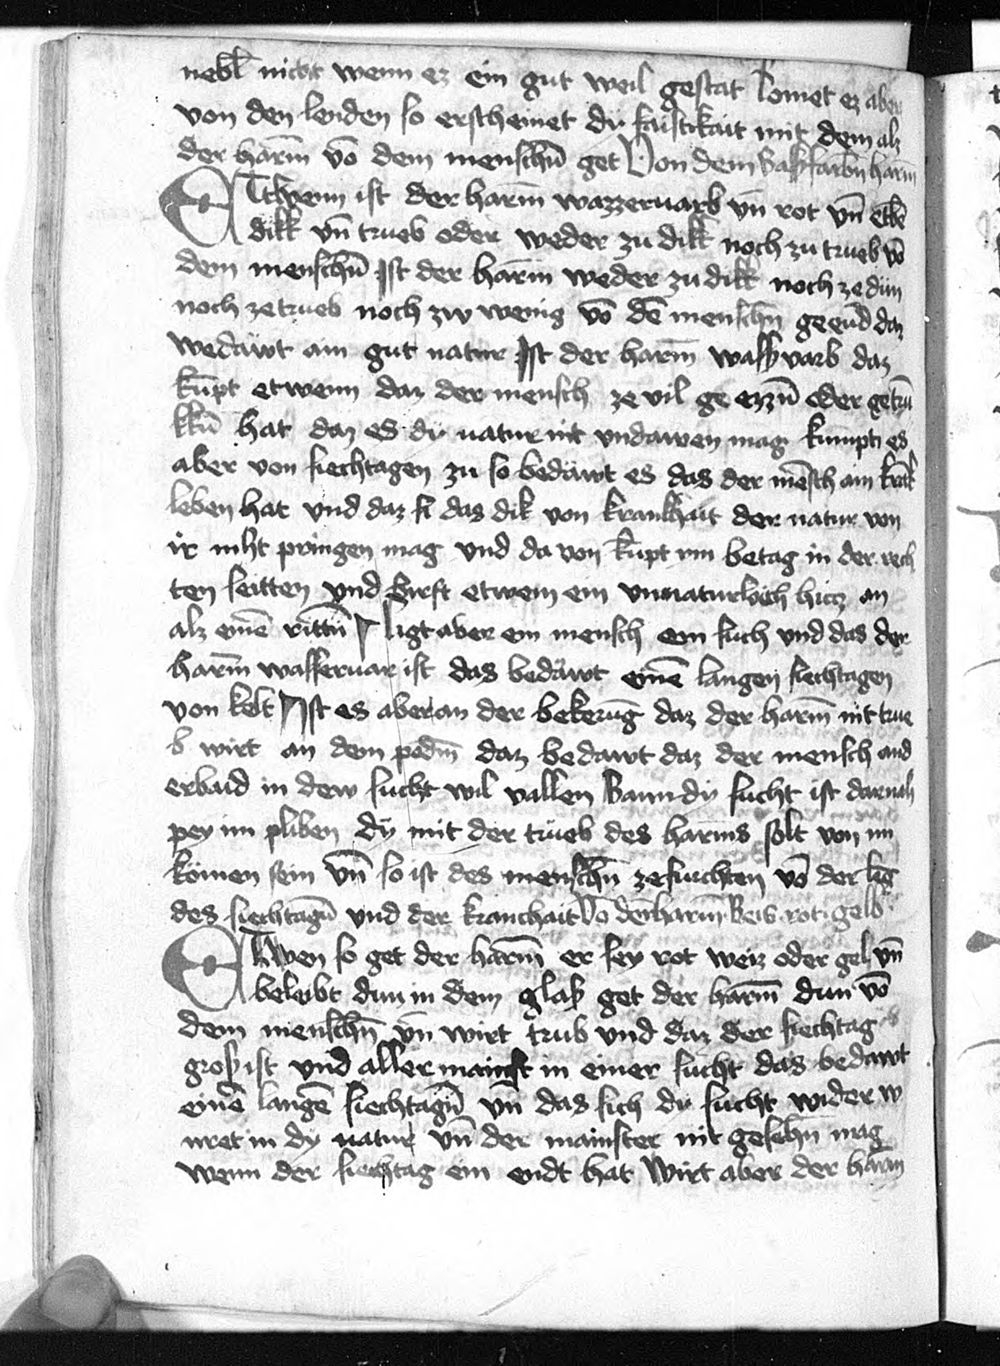 nebl nicht wenn ez ein gut weil gestat komet ez aber
von den lenden so erscheinet dy faistikait mit dem alz
der harm̄ vō dem menschn̄ get Von dem Sakfarbn̄ harm̄
Etwenn ist der harm̄ wazzeruarb vn̄ rot vn̄ etbē
dikk vn̄ trueb oder weder zu dikk noch zu trueb vō
dem menschn̄ Ist der harm̄ weder zu dikk noch ze dün
noch ze trueb noch zw wenig vō dē menschn̄ geend daz
wedäwt ain gut natur Ist der harm̄ wassvarb daz
kūpt etwenn daz der mensch ze vil ge ezzn̄ oder getru
kkn̄ hat daz es dy natur nit vndawen mag kümpt es
aber von siechtagen zu so bedäwt es das der mēsch ain krāk
leben hat vnd daz si das dik von krankhait der natur von
ir niht pringen mag vnd da von kūpt im betag in der rech
ten seitten vnd Sirft etwem ein vnnaturleich hicz an
alz einē rittn̄ ligt aber ein mensch ein such vnd das der
harm̄ wasseruar ist das bedäwt einē langen siechtagen
von kelt Ist es aber an der bekerūg daz der harm̄ nit true
b wirt an dem podm̄ daz bedawt daz der mensch and
erbaid in dew sucht wil vallen Wann dy sucht ist darnah
pey im pliben dy mit der trüeb des harms solt von im
kömen sein vn̄ so ist des menschn̄ zefurchten vō der leg
des siechtagn̄ vnd der kranchait Vō dem harm̄ Weis rot gelb
Etwen so get der harm̄ er sey rot weiz oder gel vn̄
beleibt dun in dem glas get der harm̄ dun vō
dem menschn̄ vn̄ wirt trub vnd daz der siechtag
gross ist vnd aller mainst in einer sucht das bedawt
einē langē siechtagn̄ vn̄ das sich dy sucht wider w
uret in dy natur vn̄ der mainster nit gesehn̄ mag
wenn der siechtag ein endt hat Wirt aber der harm